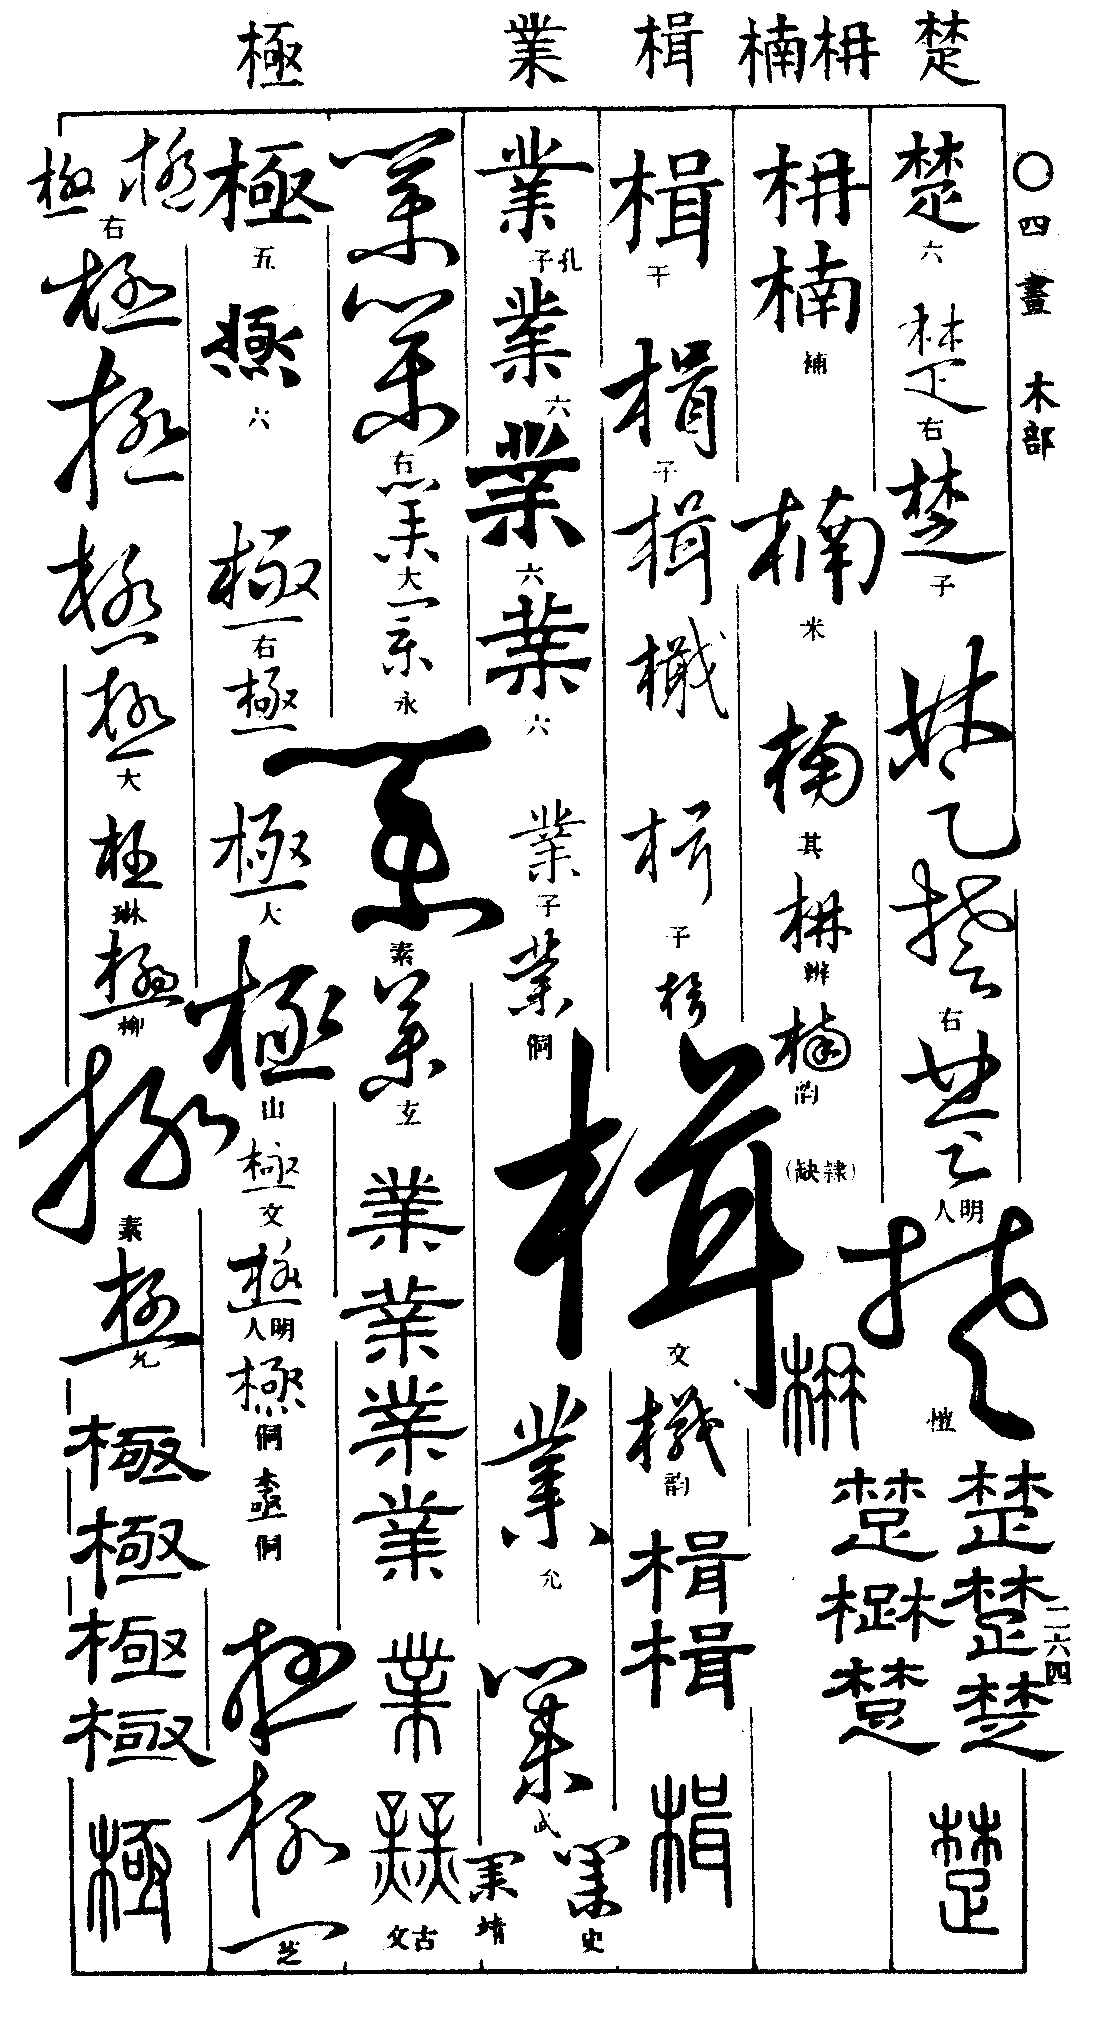 楚
枏楠
楫
業
極
〇四畫 木部
二六四
楚
六
楚
右
楚
子
楚
楚
右
楚
明人
楚
惟
楚
楚
楚
楚
楚
楚
楚
枏
楠
補
楠
米
楠
其
枏
辨
楠
韵
(隸缺)
枏
楫
干
楫
子
楫
楫
楫
子
楫
楫
文
楫
韵
楫
楫
楫
業
孔子
業
六
業
六
業
六
業
子
業
侗
業
允
業
武
業
史
業
靖
業
業
右
業
大
業
永
業
素
業
玄
業
業
業
業
業
業
古文
極
五
極
六
極
右
極
極
大
極
山
極
文
極
明人
極
侗
極
侗
極
極
芝
極
極
右
極
極
極
極
大
極
琳
極
柳
極
素
極
允
極
極
極
極
極